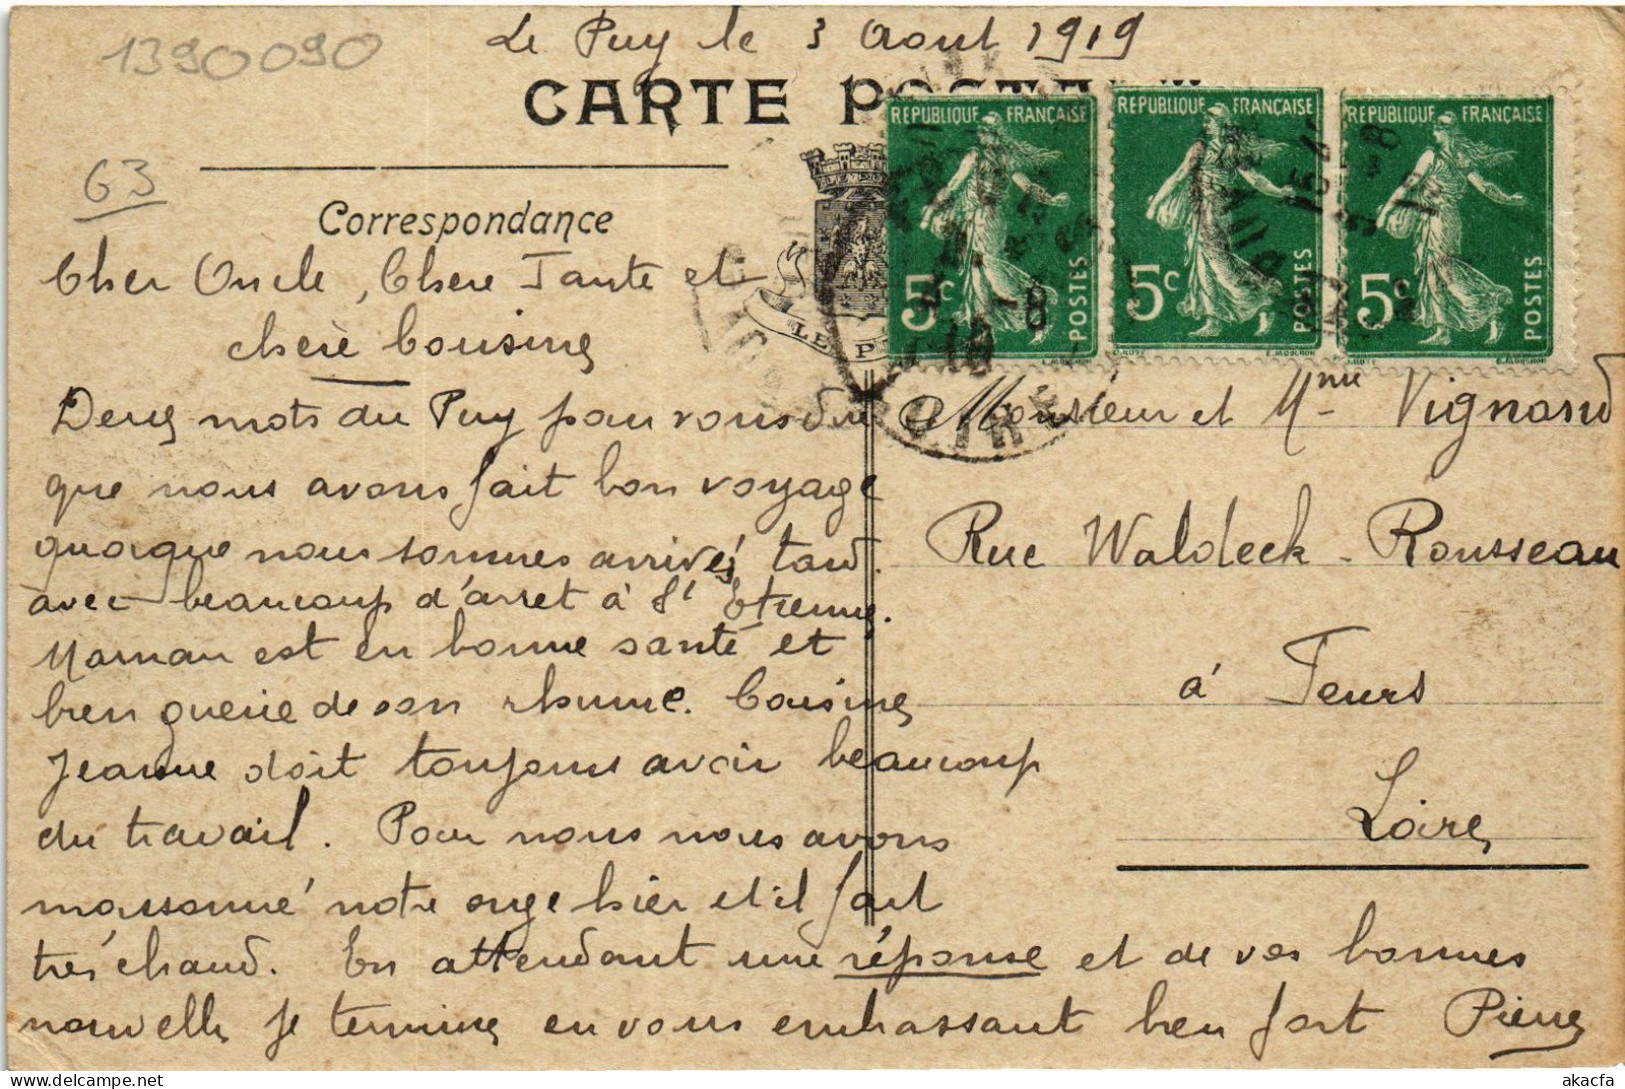 Le Puy le 3 Aout 1919
1390090
CARTE POSTALE
63
RÉPUBLIQUE FRANÇAISE
5c POSTES
RÉPUBLIQUE FRANÇAISE
5c POSTES
RÉPUBLIQUE FRANÇAISE
5c POSTES
LE PUY
Correspondance
Cher Oncle, Chere Tante et
chere Cousine
Deux mots du Puy pour vous dire
que nous avons fait bon voyage
quoique nous sommes arrivés tard.
avec beaucoup d'arret à St Etienne.
Maman est en bonne santé et
bien guerie de son rhume. Cousine
Jeanne doit toujours avoir beaucoup
du travail. Pour nous nous avons
moissonné notre orge hier et il fait
très chaud. En attendant une réponse et de vos bonnes
nouvelles je termine en vous embrassant bien fort Pierre
Monsieur et Mme Vignand
Rue Waldeck-Rousseau
à Feurs
Loire
akacfa